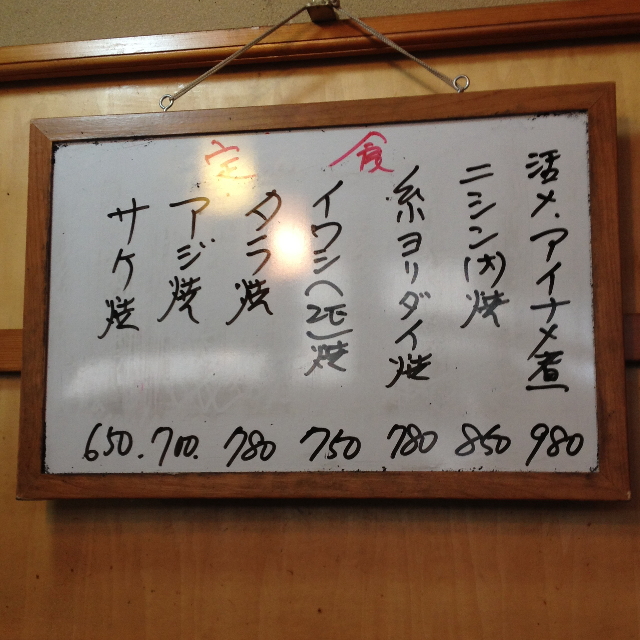 食定
活〆.アイナメ煮
980
ニシン(大)焼
850
糸ヨリダイ焼
780
イワシ(2匹)焼
750
タラ焼
780
アジ焼
700.
サケ焼
650.